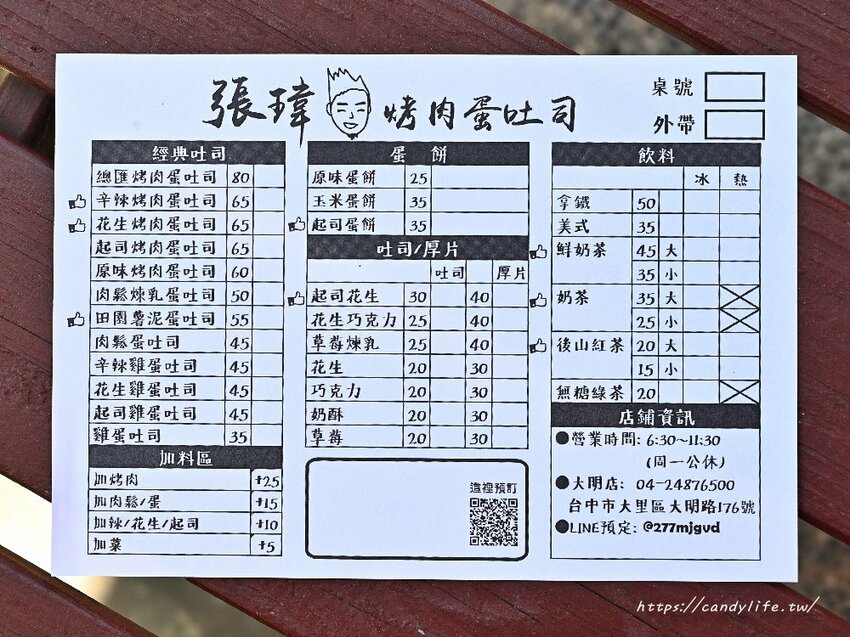 張瑋 烤肉蛋吐司
桌號
外帶
經典吐司
總匯烤肉蛋吐司 80
辛辣烤肉蛋吐司 65
花生烤肉蛋吐司 65
起司烤肉蛋吐司 65
原味烤肉蛋吐司 60
肉鬆煉乳蛋吐司 50
田園薯泥蛋吐司 55
肉鬆蛋吐司 45
辛辣雞蛋吐司 45
花生雞蛋吐司 45
起司雞蛋吐司 45
雞蛋吐司 35
加料區
加烤肉 +25
加肉鬆/蛋 +15
加辣/花生/起司 +10
加菜 +5
蛋餅
原味蛋餅 25
玉米蛋餅 35
起司蛋餅 35
吐司/厚片
吐司 厚片
起司花生 30 40
花生巧克力 25 40
草莓煉乳 25 40
花生 20 30
巧克力 20 30
奶酥 20 30
草莓 20 30
這裡預訂
飲料
冰 熱
拿鐵 50
美式 35
鮮奶茶 45 大
35 小
奶茶 35 大
25 小
後山紅茶 20 大
15 小
無糖綠茶 20
店鋪資訊
●營業時間: 6:30~11:30
(周一公休)
●大明店: 04-24876500
台中市大里區大明路176號
●LINE預定: @277mjgvd
https://candylife.tw/